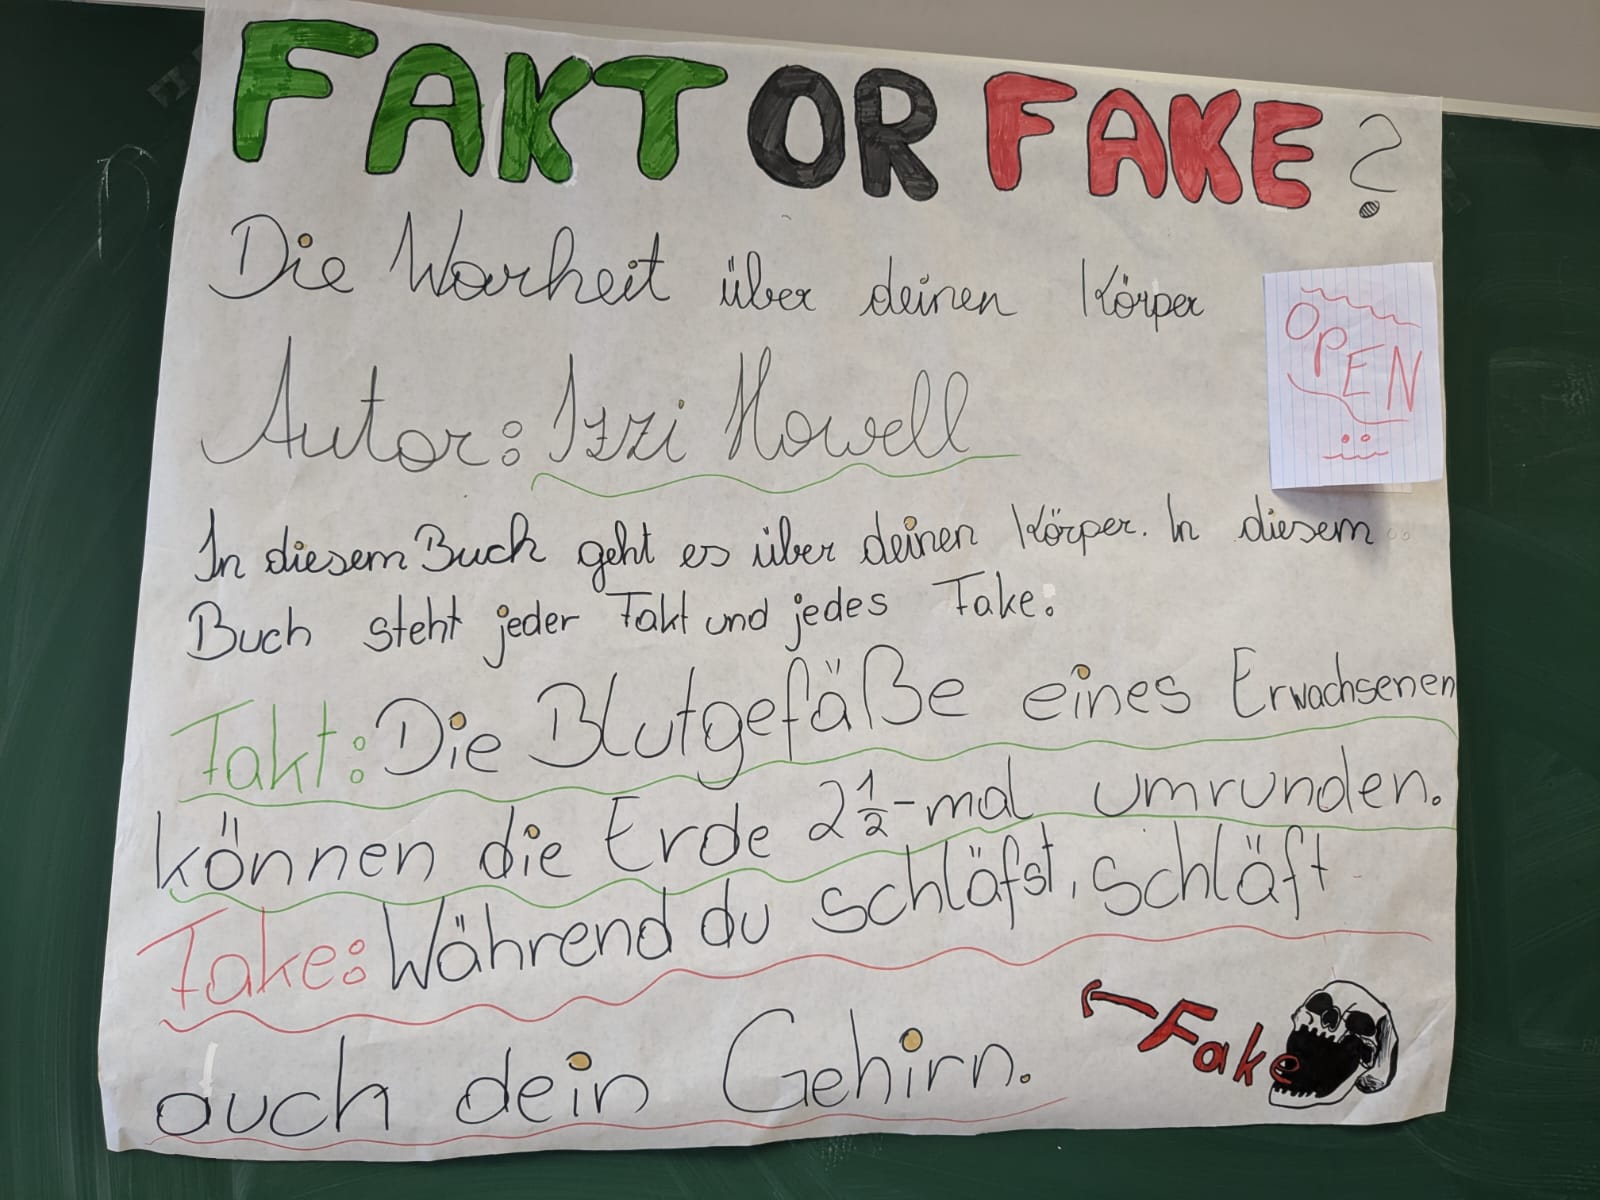 FAKT OR FAKE?
Die Warheit über deinen Körper
Autor: Izzi Howell
OPEN
In diesem Buch geht es über deinen Körper. In diesem
Buch steht jeder Fakt und jedes Fake.
Fakt: Die Blutgefäße eines Erwachsenen
können die Erde 2 1/2-mal umrunden.
Fake: Während du schläfst, schläft
auch dein Gehirn.
Fake